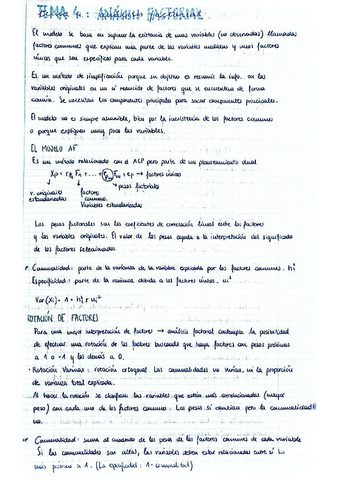 TEMA 4: ANÁLISIS FACTORIAL
El modelo se basa en suponer la existencia de unas variables (no observadas) llamadas
factores comunes que explican una parte de las variables medidas y unos factores
únicos que son específicos para cada variable.
Es un método de simplificación porque su objetivo es resumir la info. en las
variables originales en un nº reducido de factores que se encuentran de forma
común. Se necesitan los componentes principales para sacar componentes principales.
El modelo no es siempre asumible, bien por la inexistencia de los factores comunes
o porque expliquen muy poco las variables.
EL MODELO AF
Es un método relacionado con el ACP pero parte de un planteamiento dual
Xp = + ... + + ep → factores únicos
→ pesos factoriales
v. originales
estandarizadas
factores
comunes.
Variables estandarizadas
Los pesos factoriales son los coeficientes de correlación lineal entre los factores
y las variables originales. El valor de los pesos ayuda a la interpretación del significado
de los factores seleccionados.
Comunalidad: parte de la varianza de la variable explicada por los factores comunes. hi²
Especificidad: parte de la varianza debida a los factores únicos. ui²
Var(Xi) = 1 = hi² + ui²
ROTACIÓN DE FACTORES
Para una mejor interpretación de factores → análisis factorial contempla la posibilidad
de efectuar una rotación de los factores buscando que haya factores con pesos próximos
a 1 o -1 y los demás a 0.
· Rotación Varimax: rotación octogonal. Las comunalidades no varían, ni la proporción
de varianza total explicada.
Al hacer la rotación se clarifican las variables que están más correlacionadas (mayor
peso) con cada uno de los factores comunes. Los pesos sí cambian pero la comunalidad
no.
Comunalidad: suma al cuadrado de los pesos de los factores comunes de cada variable
Si las comunalidades son altas, las variables deben estar relacionadas entre sí. Lo
más próximo a 1. (La especifidad: 1 - comunalidad)